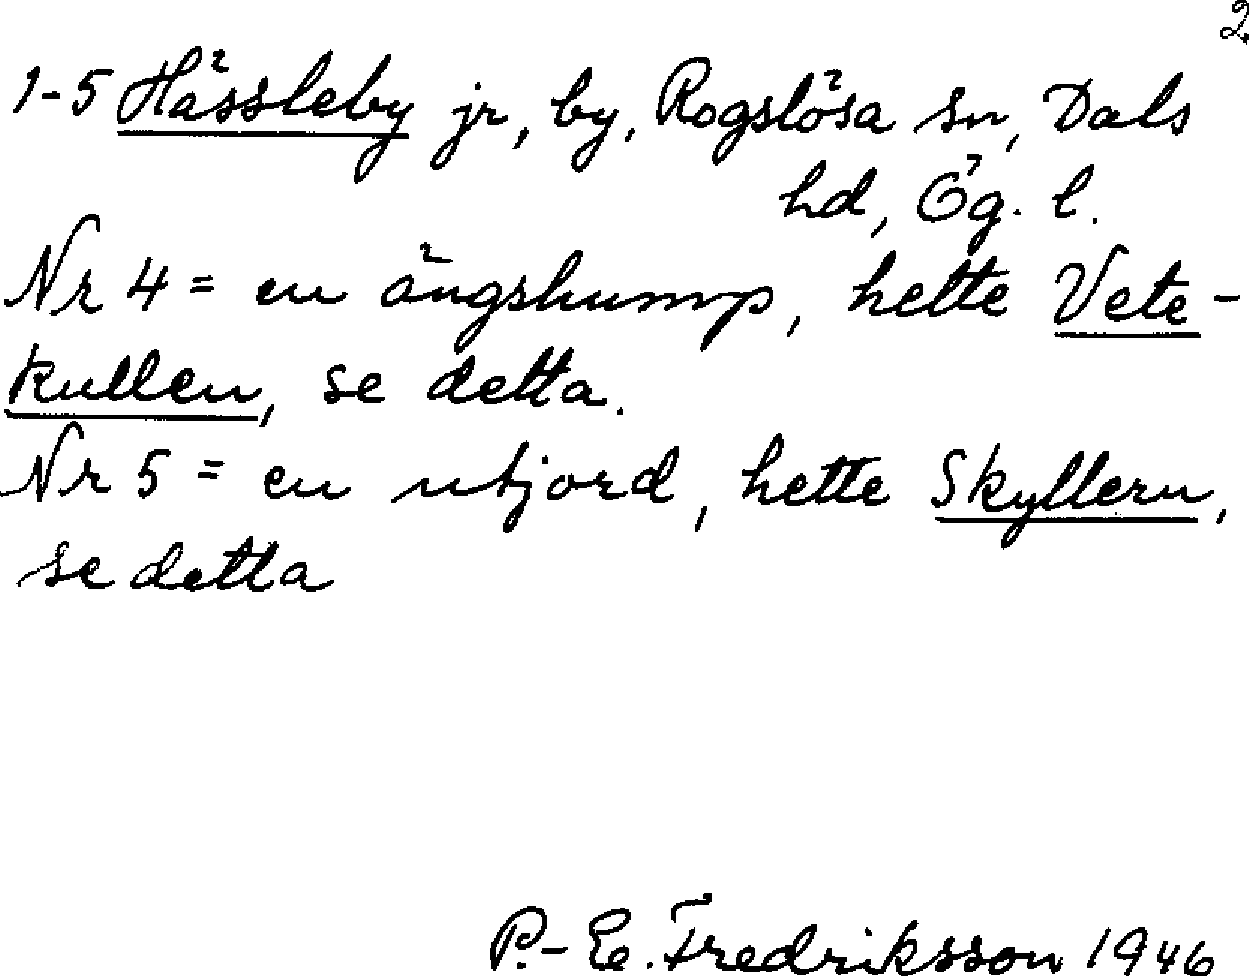 2
1-5 Hässleby jr, by, Rogslösa sn, Dals
hd, Ög. l.
Nr 4 = en ängshump, hette Vete-
kullen, se detta.
Nr 5 = en utjord, hette Skyllern,
se detta
P.-E. Fredriksson 1946